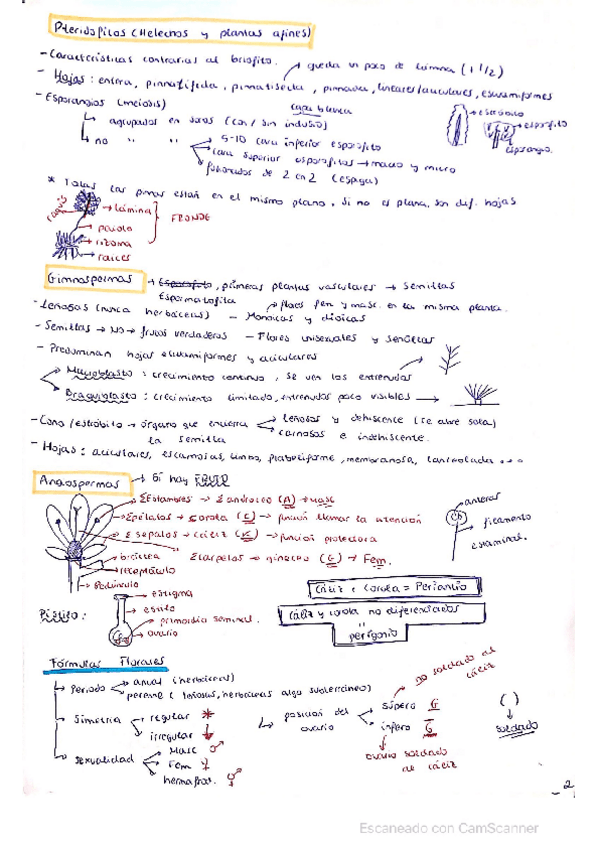 Pteridofitos (Helechos y plantas afines)
- Características contrarias al briofito. queda un poco de lámina (1 1/2)
- Hojas: entera, pinnatífida, pinnatisecta, pinnada, lineares/aciculares, escuamiformes
- Esporangios (meiosis) capa blanca
agrupados en soros (con/sin indusio)
no " " 5-10 cara inferior esporofito
cara superior esporofitos → macro y micro
fusionados de 2 en 2 (espiga)
estróbilo
esporofito
esporangio
* Todas las pinnas están en el mismo plano, si no es plana, son dif. hojas
raquis
lámina
peciolo
FRONDE
rizoma
raíces
Gimnospermas → Esporofito, primeras plantas vasculares → semillas
Espermatofita → flores fem y masc. en la misma planta.
- Leñosas (nunca herbáceas) - Monoicas y dioicas
- Semillas → No → frutos verdaderos - Flores unisexuales y sencillas
- Predominan hojas escuamiformes y aciculares
Macroblasto: crecimiento continuo, se ven los entrenudos
Braquiblasto: crecimiento limitado, entrenudos poco visibles
- Cono/estróbilo → órgano que encierra la semilla
leñosos y dehiscente (se abre solo)
carnosos e indehiscente.
- Hojas: aciculares, escamosas, flabeliforme, membranosa, lanceolada ...
Angiospermas → Sí hay FRUTO
ΣEstambres → Σandroceo (A) → masc
Σpétalos → corola (C) → función llamar la atención
Σsépalos → cáliz (K) → función protectora
Σcarpelos → gineceo (G) → Fem.
bráctea
receptáculo
Pedúnculo
anteras
filamento
estaminal.
Pistilo:
estigma
estilo
primordio seminal
ovario
Cáliz + Corola = Periantio
Cáliz y corola no diferenciados
"
perigonio
Fórmulas Florales
Periodo
anual (herbáceas)
perenne (leñosas, herbáceas algo subterráneo)
Simetría
regular *
irregular ↓
Sexualidad
Masc ♂
Fem ♀
hermafrod. ⚥
posición del ovario
súpero G
no soldado al cáliz
ínfero G
ovario soldado al cáliz
( )
soldado
- 2
Escaneado con CamScanner